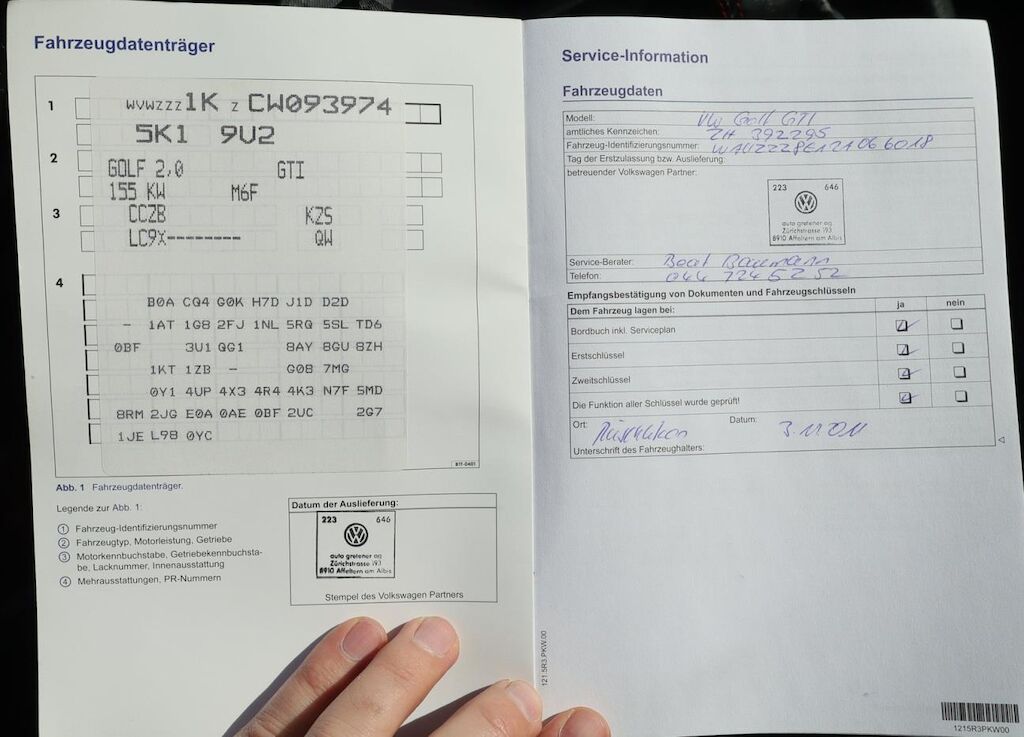 Fahrzeugdatenträger
1
WVWZZZ1K Z CW093974
5K1 9U2
2
GOLF 2,0 GTI
155 KW M6F
3
CCZB KZS
LC9X------- QW
4
B0A CQ4 G0K H7D J1D D2D
- 1AT 1G8 2FJ 1NL 5RQ 5SL TD6
0BF 3U1 QG1 8AY 8GU 8ZH
1KT 1ZB - G08 7MG
0Y1 4UP 4X3 4R4 4K3 N7F 5MD
8RM 2JG E0A 0AE 0BF 2UC 2G7
1JE L98 0YC
B1F-0401
Abb. 1 Fahrzeugdatenträger.
Legende zur Abb. 1:
1 Fahrzeug-Identifizierungsnummer
2 Fahrzeugtyp, Motorleistung, Getriebe
3 Motorkennbuchstabe, Getriebekennbuchsta-
be, Lacknummer, Innenausstattung
4 Mehrausstattungen, PR-Nummern
Datum der Auslieferung:
223 646
auto gretener ag
Zürichstrasse 193
8910 Affoltern am Albis
Stempel des Volkswagen Partners
Service-Information
Fahrzeugdaten
Modell: VW Golf GTI
amtliches Kennzeichen: ZH 392295
Fahrzeug-Identifizierungsnummer: WAUZZZ8E121066018
Tag der Erstzulassung bzw. Auslieferung:
betreuender Volkswagen Partner:
223 646
auto gretener ag
Zürichstrasse 193
8910 Affoltern am Albis
Service-Berater: Beat Baumann
Telefon: 044 724 52 52
Empfangsbestätigung von Dokumenten und Fahrzeugschlüsseln
Dem Fahrzeug lagen bei: ja nein
Bordbuch inkl. Serviceplan
Erstschlüssel
Zweitschlüssel
Die Funktion aller Schlüssel wurde geprüft!
Ort: Datum: 3.11.2011
Unterschrift des Fahrzeughalters:
121.5R3.PKW.00
1215R3PKW00